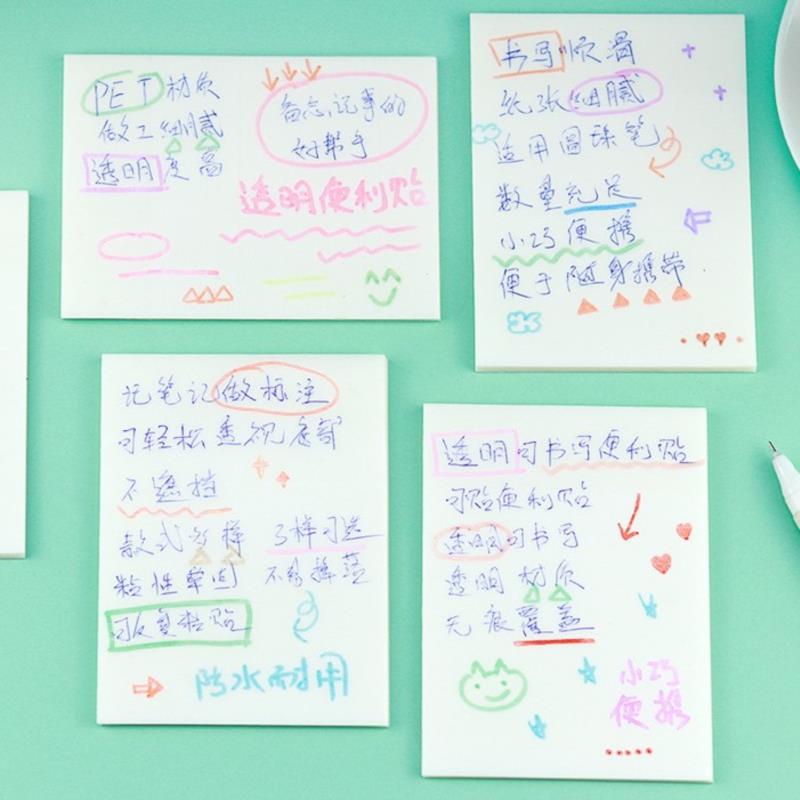 PET材质
做工细腻
透明度高
备忘,记事的
好帮手
透明便利贴
书写顺滑
纸张细腻
适用圆珠笔
数量充足
小巧便携
便于随身携带
记笔记做标注
可轻松透视底部
不遮挡
款式多样
多样可选
粘性牢固
不易掉落
可反复粘贴
防水耐用
透明可书写便利贴
可贴便利贴
透明可书写
透明材质
无痕覆盖
小巧
便携